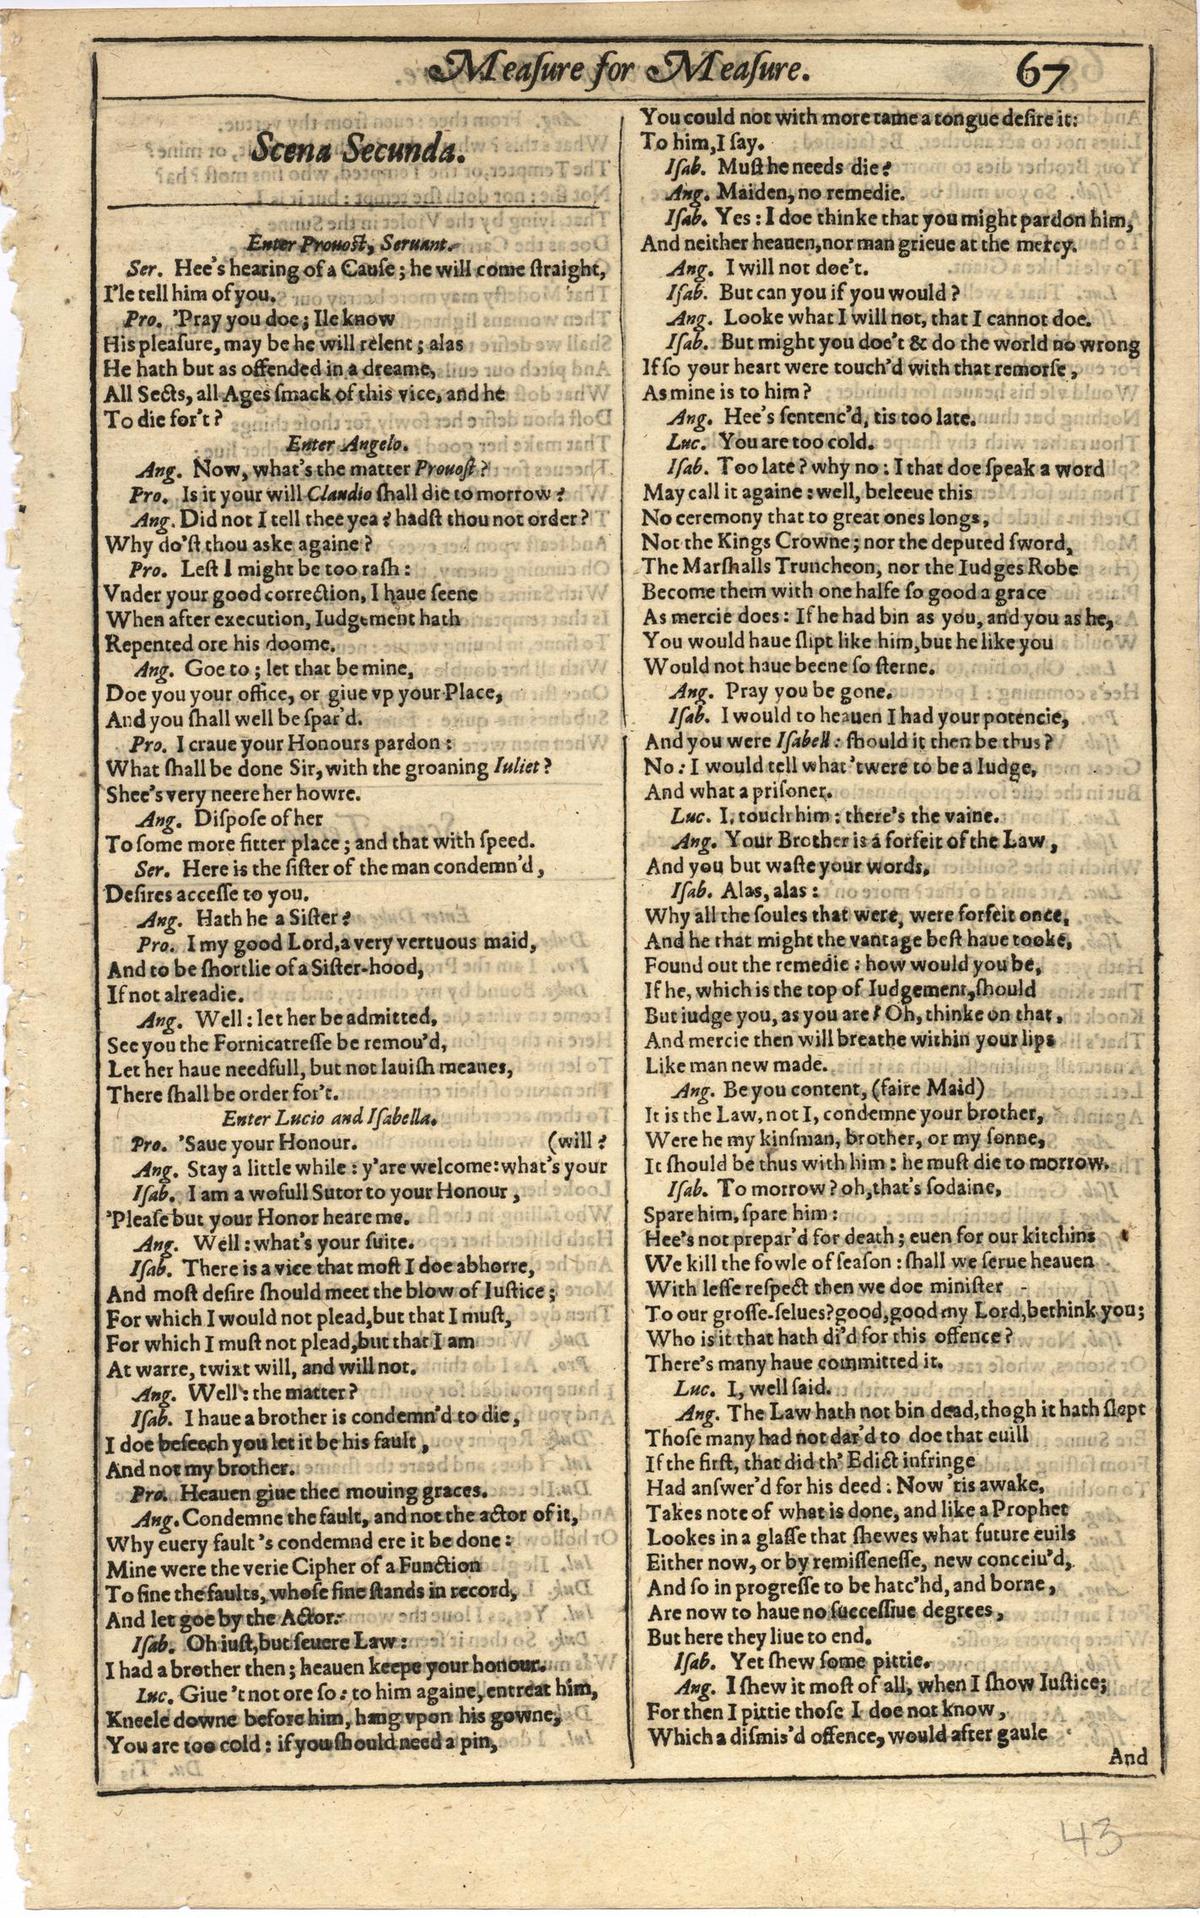 Meaſure for Meaſure. 67
Scena Secunda.
Enter Prouoſt, Seruant.
Ser. Hee's hearing of a Cauſe; he will come ſtraight,
I'le tell him of you.
Pro. 'Pray you doe; Ile know
His pleaſure, may be he will relent; alas
He hath but as offended in a dreame,
All Sects, all Ages ſmack of this vice, and he
To die for't?
Enter Angelo.
Ang. Now, what's the matter Prouoſt?
Pro. Is it your will Claudio ſhall die to morrow?
Ang. Did not I tell thee yea? hadſt thou not order?
Why do'ſt thou aske againe?
Pro. Leſt I might be too raſh:
Vnder your good correction, I haue ſeene
When after execution, Iudgement hath
Repented ore his doome.
Ang. Goe to; let that be mine,
Doe you your office, or giue vp your Place,
And you ſhall well be ſpar'd.
Pro. I craue your Honours pardon:
What ſhall be done Sir, with the groaning Iuliet?
Shee's very neere her howre.
Ang. Diſpoſe of her
To ſome more fitter place; and that with ſpeed.
Ser. Here is the ſiſter of the man condemn'd,
Deſires acceſſe to you.
Ang. Hath he a Siſter?
Pro. I my good Lord, a very vertuous maid,
And to be ſhortlie of a Siſter-hood,
If not alreadie.
Ang. Well: let her be admitted,
See you the Fornicatreſſe be remou'd,
Let her haue needfull, but not lauiſh meanes,
There ſhall be order for't.
Enter Lucio and Iſabella.
Pro. 'Saue your Honour. (will?
Ang. Stay a little while: y'are welcome: what's your
Iſab. I am a wofull Sutor to your Honour,
'Pleaſe but your Honor heare me.
Ang. Well: what's your ſuite.
Iſab. There is a vice that moſt I doe abhorre,
And moſt deſire ſhould meet the blow of Iuſtice;
For which I would not plead, but that I muſt,
For which I muſt not plead, but that I am
At warre, twixt will, and will not.
Ang. Well: the matter?
Iſab. I haue a brother is condemn'd to die,
I doe beſeech you let it be his fault,
And not my brother.
Pro. Heauen giue thee mouing graces.
Ang. Condemne the fault, and not the actor of it,
Why euery fault 's condemnd ere it be done:
Mine were the verie Cipher of a Function
To fine the faults, whoſe fine ſtands in record,
And let goe by the Actor:
Iſab. Oh iuſt, but ſeuere Law:
I had a brother then; heauen keepe your honour.
Luc. Giue 't not ore ſo: to him againe, entreat him,
Kneele downe before him, hang vpon his gowne,
You are too cold: if you ſhould need a pin,
You could not with more tame a tongue deſire it:
To him, I ſay.
Iſab. Muſt he needs die?
Ang. Maiden, no remedie.
Iſab. Yes: I doe thinke that you might pardon him,
And neither heauen, nor man grieue at the mercy.
Ang. I will not doe't.
Iſab. But can you if you would?
Ang. Looke what I will not, that I cannot doe.
Iſab. But might you doe't & do the world no wrong
If ſo your heart were touch'd with that remorſe,
As mine is to him?
Ang. Hee's ſentenc'd, tis too late.
Luc. You are too cold.
Iſab. Too late? why no: I that doe ſpeak a word
May call it againe: well, beleeue this
No ceremony that to great ones longs,
Not the Kings Crowne; nor the deputed ſword,
The Marſhalls Truncheon, nor the Iudges Robe
Become them with one halfe ſo good a grace
As mercie does: If he had bin as you, and you as he,
You would haue ſlipt like him, but he like you
Would not haue beene ſo ſterne.
Ang. Pray you be gone.
Iſab. I would to heauen I had your potencie,
And you were Iſabell: ſhould it then be thus?
No: I would tell what 'twere to be a Iudge,
And what a priſoner.
Luc. I, touch him: there's the vaine.
Ang. Your Brother is a forfeit of the Law,
And you but waſte your words.
Iſab. Alas, alas:
Why all the ſoules that were, were forfeit once,
And he that might the vantage beſt haue tooke,
Found out the remedie: how would you be,
If he, which is the top of Iudgement, ſhould
But iudge you, as you are? Oh, thinke on that,
And mercie then will breathe within your lips
Like man new made.
Ang. Be you content, (faire Maid)
It is the Law, not I, condemne your brother,
Were he my kinſman, brother, or my ſonne,
It ſhould be thus with him: he muſt die to morrow.
Iſab. To morrow? oh, that's ſodaine,
Spare him, ſpare him:
Hee's not prepar'd for death; euen for our kitchins
We kill the fowle of ſeaſon: ſhall we ſerue heauen
With leſſe reſpect then we doe miniſter
To our groſſe-ſelues? good, good my Lord, bethink you;
Who is it that hath di'd for this offence?
There's many haue committed it.
Luc. I, well ſaid.
Ang. The Law hath not bin dead, thogh it hath ſlept
Thoſe many had not dar'd to doe that euill
If the firſt, that did th' Edict infringe
Had anſwer'd for his deed: Now 'tis awake,
Takes note of what is done, and like a Prophet
Lookes in a glaſſe that ſhewes what future euils
Either now, or by remiſſeneſſe, new conceiu'd,
And ſo in progreſſe to be hatc'hd, and borne,
Are now to haue no ſucceſſiue degrees,
But here they liue to end.
Iſab. Yet ſhew ſome pittie.
Ang. I ſhew it moſt of all, when I ſhow Iuſtice;
For then I pittie thoſe I doe not know,
Which a diſmis'd offence, would after gaule
And
43